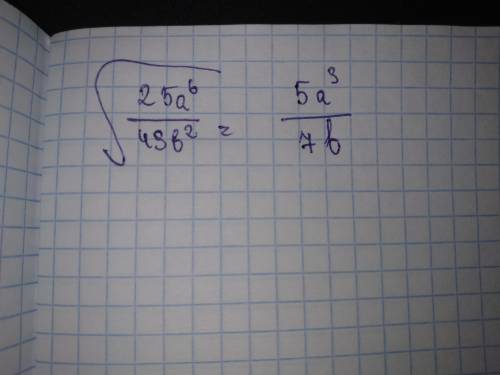 √(25a⁶/49b²) = 5a³/7b